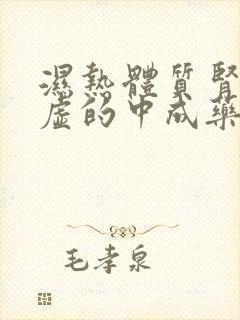 濕熱體質腎
虛的中成藥
毛孝泉